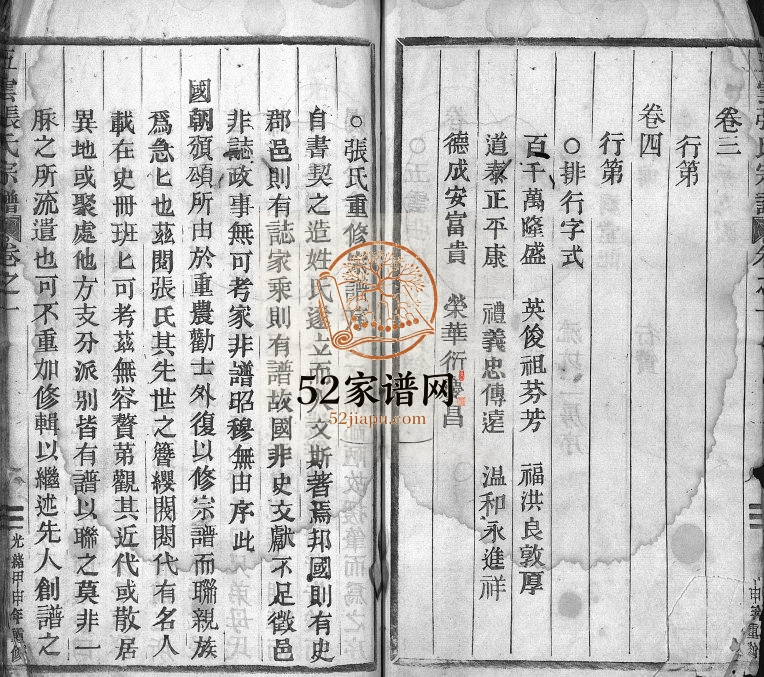 卷三
行第
卷四
行第
○排行字式
百千萬隆盛 英俊祖芬芳 福洪良敦厚
道泰正平康 禮義忠傳達 溫和永進祥
德成安富貴 榮華衍慶昌
○張氏重修宗譜序
自書契之造姓氏遂立而 文斯著焉邦國則有史
郡邑則有誌家乘則有譜故國非史文獻不足徵邑
非誌政事無可考家非譜昭穆無由序此
國朝頒頌所由於重農勸士外復以修宗譜而聯親族
爲急匕也茲閱張氏其先世之簪纓閥閱代有名人
載在史冊班匕可考茲無容贅第觀其近代或散居
異地或聚處他方支分派別皆有譜以聯之莫非一
脉之所流遺也可不重加修輯以繼述先人創譜之
五雲張氏宗譜 卷之一
光緒甲申年重修
52家谱网
52jiapu.com